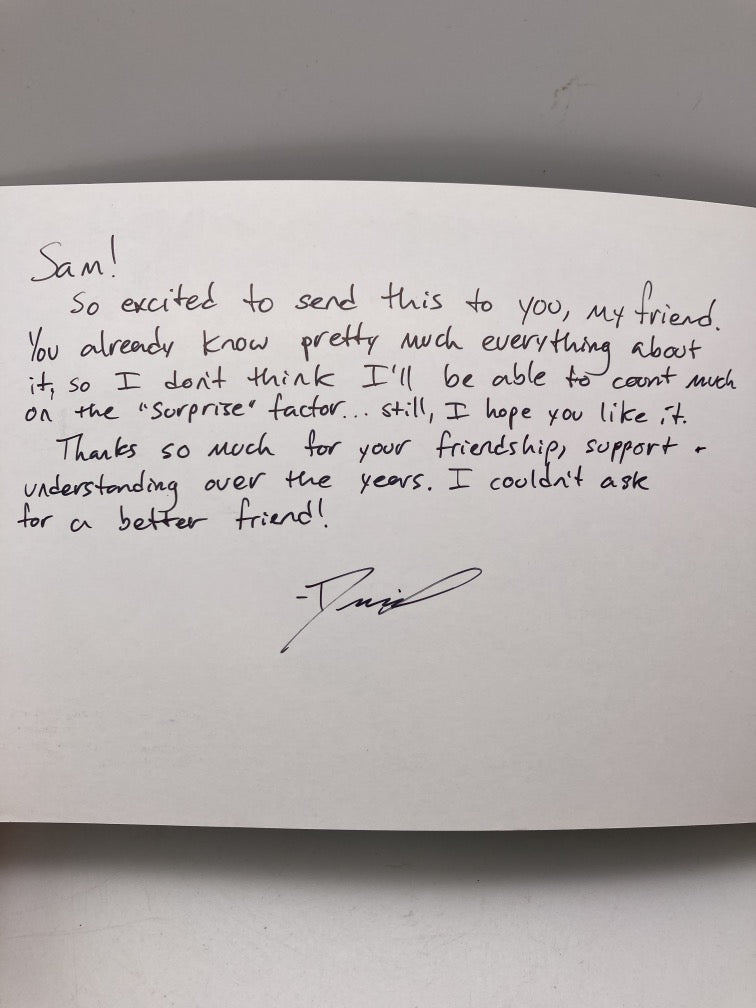 Sam!
So excited to send this to you, my friend.
You already know pretty much everything about
it, so I don't think I'll be able to count much
on the "surprise" factor... still, I hope you like it.
Thanks so much for your friendship, support +
understanding over the years. I couldn't ask
for a better friend!
-David